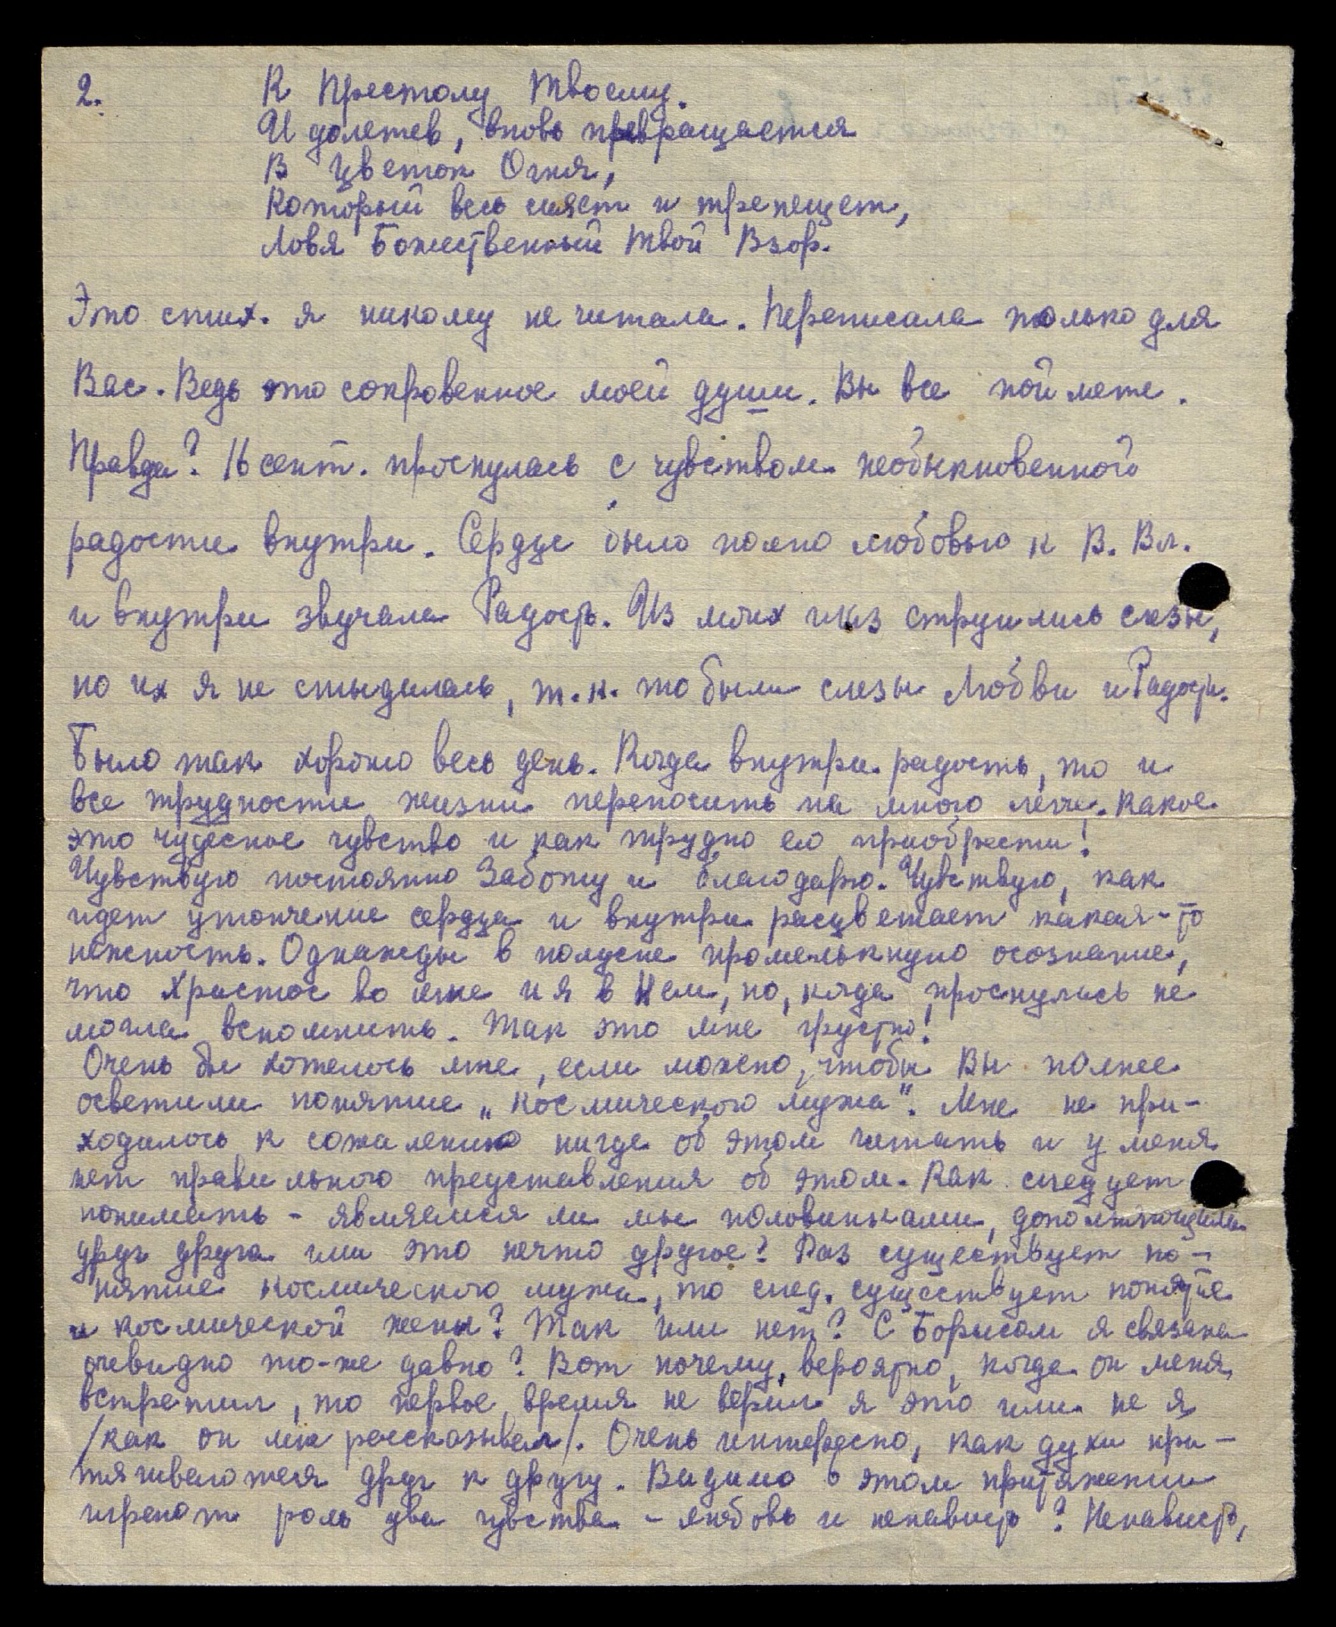 2.
К Престолу Твоему.
И долетев, вновь превращается
В Цветок Огня,
Который весь сияет и трепещет,
Ловя Божественный Твой Взор.
Это стих. я никому не читала. Переписала только для
Вас. Ведь это сокровенное моей души. Вы все поймете.
Правда? 16 сент. проснулась с чувством необыкновенной
радости внутри. Сердце было полно любовью к В. Вл.
и внутри звучала Радость. Из моих глаз струились слезы,
но их я не стыдилась, т.к. то были слезы Любви и Радости.
Было так хорошо весь день. Когда внутри радость, то и
все трудности жизни переносить на много легче. Какое
это чудесное чувство и как трудно его приобрести!
Чувствую постоянно Заботу и благодарю. Чувствую, как
идет утончение сердца и внутри расцветает какая-то
нежность. Однажды в полусне промелькнуло осознание,
что Христос во мне и я в Нем, но, когда проснулась не
могла вспомнить. Так это мне грустно!
Очень бы хотелось мне, если можно, чтобы Вы полнее
осветили понятие „космического мужа". Мне не при-
ходилось к сожалению нигде об этом читать и у меня
нет правильного представления об этом. Как следует
понимать - являемся ли мы половинками, дополняющими
друг друга или это нечто другое? Раз существует по-
нятие космического мужа, то след. существует понятие
и космической жены? Так или нет? С Борисом я связана
очевидно то-же давно? Вот почему, вероятно, когда он меня
встретил, то первое время не верил я это или не я
/как он мне рассказывал/. Очень интересно, как духи при-
тягиваются друг к другу. Видимо в этом притяжении
играют роль два чувства - любовь и ненависть? Ненависть,